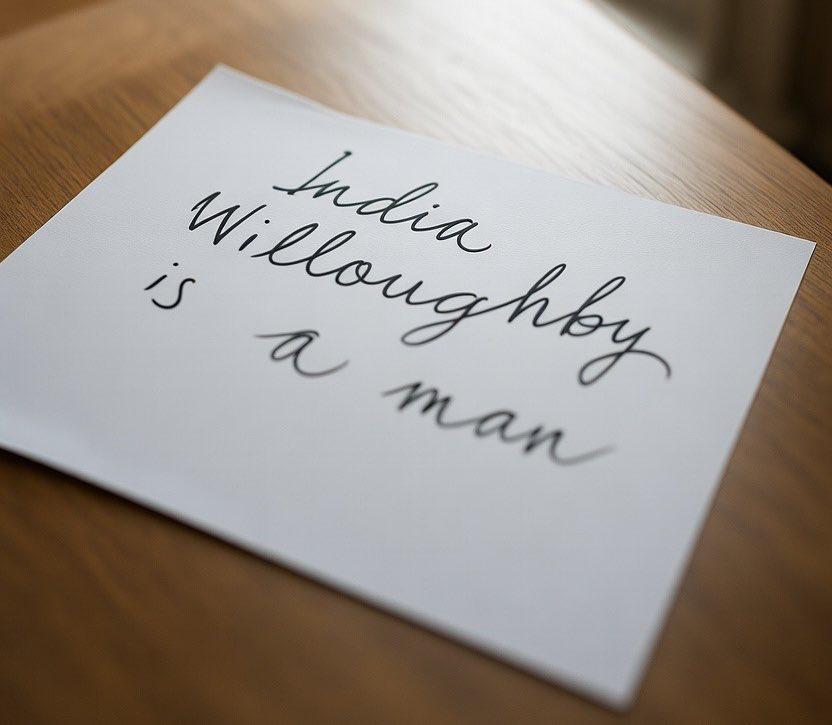 India
Willoughby
is a man